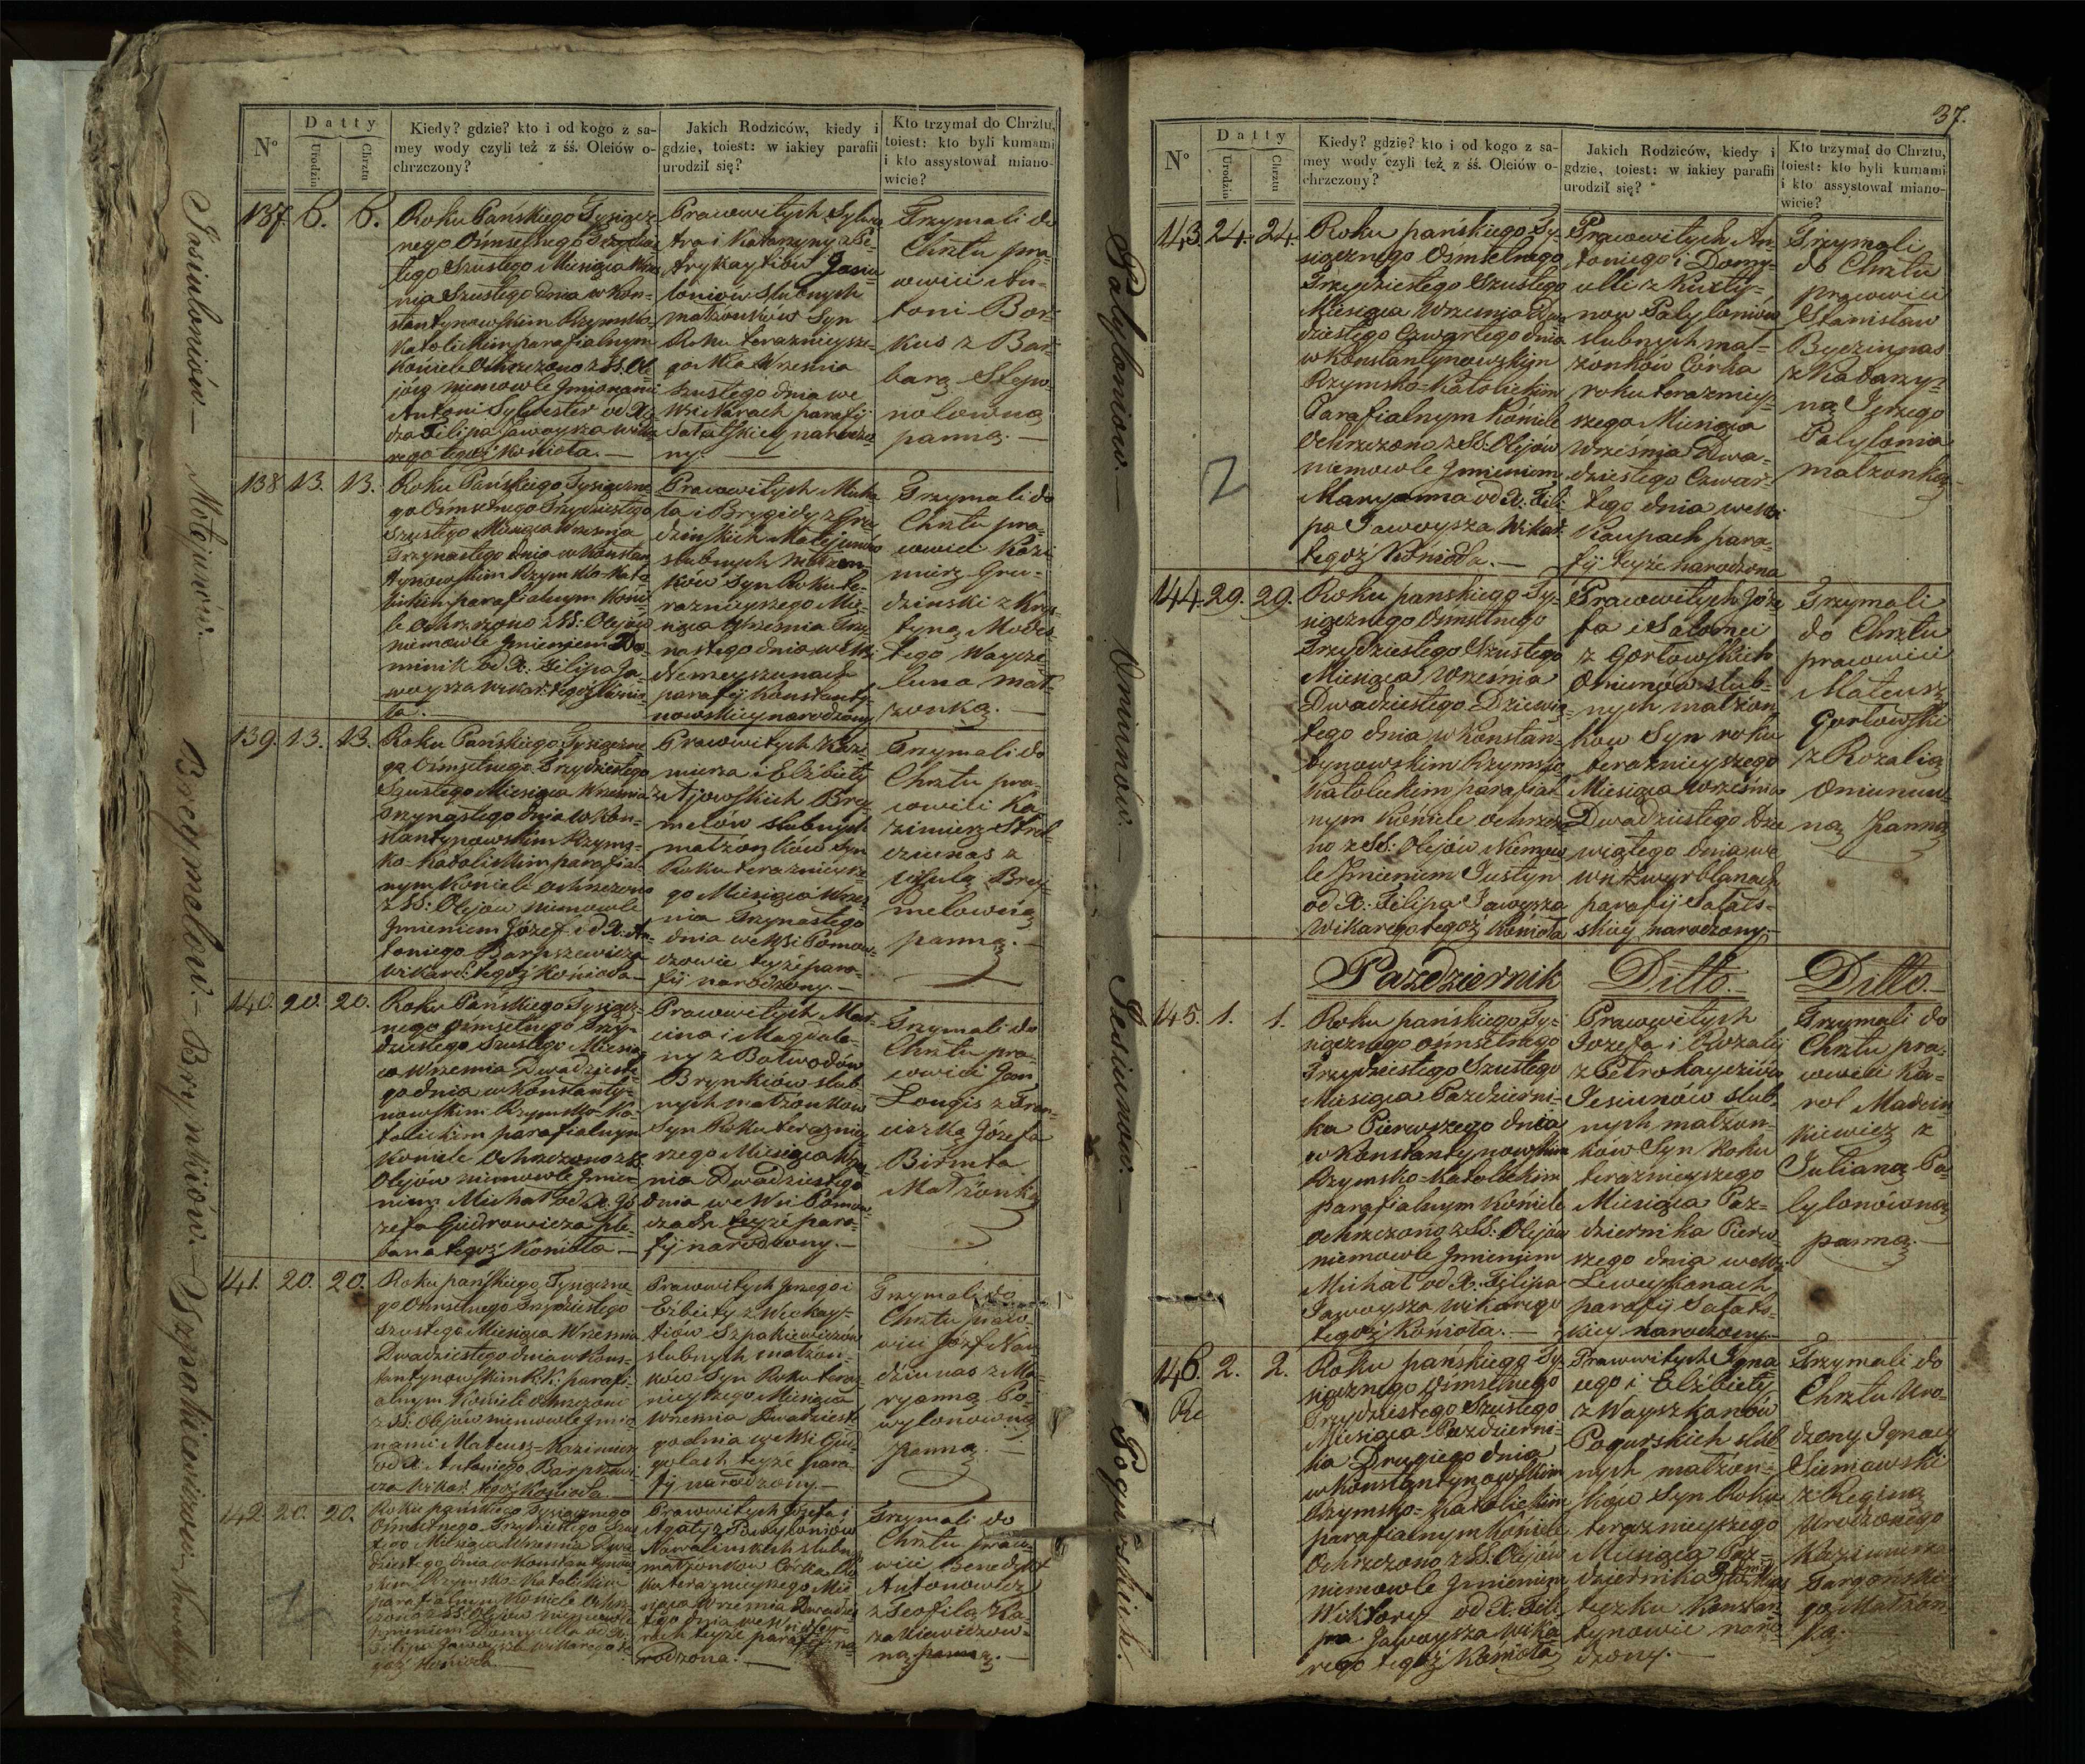 Datty
Nº
Urodzin
Chrztu
Kiedy? gdzie? kto i od kogo z sa-
mey wody czyli też z śś. Oleiów o-
chrzczony?
Jakich Rodziców, kiedy i
gdzie, toiest: w iakiey parafii
urodził się?
Kto trzymał do Chrztu,
toiest: kto byli kumami
i kto assystował miano-
wicie?
137. 6. 6.
Roku Pańskiego Tysiącz
nego Ośmsetnego Trzydzies
tego Szustego Miesiąca Wrze
nia Szustego dnia w Kon-
stantynowskim Rzymsko
Katolickim parafialnym
Kościele Ochrzczono z SS. Ole
jów niemowle Jmionami
Antoni Sylwester od X
dza Filipa Jawoysza wika
rego tegoż Kościoła.
Prawowitych Sylwes
tra i Katarzyny z Pe-
trykaytiów Jasiu
loniów Slubnych
małżonków Syn
Roku teraznieysze-
go Mca Września
Szustego dnia we
Wsi Narach parafij
Sałatskiey narodzo
ny.
Trzymali do
Chrztu pra-
wowici An-
toni Bor-
kus z Bar-
barą Steyw-
nolowną
panną.
138 13. 13.
Roku Pańskiego Tysiączne
go Ośmsetnego Trzydziestego
Szustego Miesiąca Września
Trzynastego dnia w Konstan
tynowskim Rzymsko-Kato
lickim parafialnym Kości
le Ochrzczono z SS: Olejów
niemowle Jmieniem Do-
minik od X. Filipa Ja-
woysza wikar: tegoż Kościo
ła.
Prawowitych Micha
ła i Brygidy z Gru
dzińskich Motejunów
slubnych Małżon-
ków Syn Roku te-
raznieyszego Mie-
siąca Września Trzy
nastego dnia we Wsi
Nemeyszunach
parafij Konstanty-
nowskiey narodzony
Trzymali do
Chrztu pra-
wowici Kazi
mierz Gru-
dzinski z Krys
tyną Modes-
tego Waycze
luna mał-
żonką.
139. 13. 13.
Roku Pańskiego Tysiączne
go Ośmsetnego Trzydziestego
Szustego Miesiąca Września
Trzynastego dnia w Kon-
stantynowskim Rzyms-
ko-Katolickim parafial-
nym Kościele Ochrzczono
z SS: Olejów niemowle
Jmieniem Józef od X. An-
toniego Barpszewicza
wikare: tegoż Kościoła
Prawowitych Kazi-
mierza i Elżbiety
Brey-
melów slubnych
małżonków Syn
Roku teraznieysze-
go Miesiąca Wrześ-
nia Trzynastego
dnia we Wsi Pomow-
dzowie teyże para-
fij narodzony.
Trzymali do
Chrztu pra-
wowici Ka
zimierz Strel
cziunas z
Brey-
melowną
panną.
140. 20. 20.
Roku Pańskiego Tysiącz-
nego Ośmsetnego Trzy-
dziestego Szustego Miesią
ca Września Dwudzieste
go dnia w Konstanty-
nowskim Rzymsko-Ka-
tolickim parafialnym
Kościele Ochrzczono z SS.
Olejów niemowle Jmie-
niem Michał od X. Jó
zefa Giedrowicza Ple-
bana tegoż Kościoła
Prawowitych Mar-
cina i Magdale-
ny z Bałwodów
Brynkiów slub
nych małżonków
Syn Roku teraźniey
szego Miesiąca Wrze
nia Dwudziestego
dnia we Wsi Pomow-
dzach teyże para-
fij narodzony.
Trzymali do
Chrztu pra-
wowici Jan
Lougis z Fran-
ciszką Józefa
Birnta
Małżonką
141. 20. 20.
Roku pańskiego Tysiączne
go Ośmsetnego Trzydziestego
Szustego Miesiąca Września
Dwadziestego dnia w Kons-
tantynowskim R: K: parafi-
alnym Kościele Ochrzczono
z SS: Olejów niemowle Jmio
nami Mateusz-Kazimierz
od X: Antoniego Barpszewi-
cza Wikar: tegoż Kościoła.
Prawowitych Jerzego i
Elżbiety z Wickay-
tiów Szpakiewiczów
slubnych małżon-
ków Syn Roku teraz-
nieyszego Miesiąca
Września Dwadzieste
go dnia we Wsi Gud-
golach teyże para
fij narodzony.
Trzymali do
Chrztu prawo-
wici Józef Nau
dziunas z Ma-
ryanną Po-
wylonowną
panną.
142. 20. 20.
Roku pańskiego Tysiącznego
Ośmsetnego Trzydziestego Szus
tego Miesiąca Września Dwa
dziestego dnia w Konstantynow
skim Rzymsko-Katolickim
parafialnym Kościele Ochrz-
czono z SS: Olejów niemowle
Jmieniem Domycella od X:
Filipa Jawoysza wikarego te
goż Kościoła.
Prawowitych Józefa i
Agaty z Powyloniów
Nawalinskich slubn:
małżonków Córka Ro
ku teraznieyszego Mie
siąca Września Dwadzies
tego dnia we Wsi
teyże parafij na
rodzona.
Trzymali do
Chrztu prawo
wici Benedykt
Antonowicz
z Teofilą Ka-
zakiewiczow-
ną panną.
Jasiuloniów
Motejunów.
Breymelów.
Brynkiów
Szpakiewiczów
37.
Datty
Nº
Urodzin
Chrztu
Kiedy? gdzie? kto i od kogo z sa-
mey wody czyli też z śś. Oleiów o-
chrzczony?
Jakich Rodziców, kiedy i
gdzie, toiest: w iakiey parafii
urodził się?
Kto trzymał do Chrztu,
toiest: kto byli kumami
i kto assystował miano-
wicie?
143 24. 24.
Roku pańskiego Ty-
siącznego Ośmsetnego
Trzydziestego Szustego
Miesiąca Września Dwa
dziestego Czwartego dnia
w Konstantynowskim
Rzymsko-Katolickim
Parafialnym Kościele
Ochrzczono z SS: Olejów
niemowle Jmieniem
Maryanna od X. Fili
pa Jawoysza Wikar:
tegoż Kościoła.
Prawowitych An-
toniego i Domy-
celli z Kuszty-
now Palyloniów
slubnych mał-
żonków Córka
roku terazniey-
szego Miesiąca
Września Dwa-
dziestego Czwar-
tego dnia we Wsi
Kaupach para-
fij teyże narodzona
Trzymali
do Chrztu
prawowici
Stanisław
Byczinnas
z Katarzy-
ną Jerzego
Palylonia
małżonką
144. 29. 29.
Roku pańskiego Ty-
siącznego Ośmsetnego
Trzydziestego Szustego
Miesiąca Września
Dwadziestego Dziewią-
tego dnia w Konstan-
tynowskim Rzymsko
Katolickim parafial-
nym Kościele ochrzczo
no z SS: Olejów Niemow
le Jmieniem Justyn
od X: Filipa Jawoysza
Wikarego tegoż Kościoła
Prawowitych Józe
fa i Salomei
z Gorłowskich
Oniunów slub-
nych małżon
ków Syn roku
teraznieyszego
Miesiąca Września
Dwadziestego Dzie
wiątego dnia we
wsi Zwyrblanach
parafij Sałats-
kiey narodzony.
Trzymali
do Chrztu
prawowici
Mateusz
Gorłowski
z Rozalią
Oniunow-
ną Panną
Pazdziernik Ditto. Ditto.
145. 1. 1.
Roku pańskiego Ty-
siącznego ośmsetnego
Trzydziestego Szustego
Miesiąca Pazdzierni-
ka Pierwszego dnia
w Konstantynowskim
Rzymsko-Katolickim
parafialnym Kościele
ochrzczono z SS: Olejów
niemowle Jmieniem
Michał od X: Filipa
Jawoysza wikarego
tegoż Kościoła.
Prawowitych
Jozefa i Rozalii
z Petrokaycziów
Jesiunów slub-
nych małżon-
ków Syn Roku
teraznieyszego
Miesiąca Paz-
dziernika Pierw-
szego dnia we Wsi
Leweykanach
parafij Sałats-
kiey narodzony.
Trzymali do
Chrztu pra-
wowici Ka-
rol Madzin
kiewicz z
Julianą Pa-
lylonówną
panną.
146. 2. 2.
Roku pańskiego Ty-
siącznego Ośmsetnego
Trzydziestego Szustego
Miesiąca Pazdzierni-
ka Drugiego dnia
w Konstantynowskim
Rzymsko-Katolickim
parafialnym Kościele
Ochrzczono z SS. Olejów
niemowle Jmieniem
Wiktory od X. Fili
pa Jawoysza Wika
rego tegoż Kościoła
Prawowitych Igna
cego i Elżbiety
z Wayszkanów
Pogurskich slub
nych małżon-
ków Syn Roku
teraznieyszego
Miesiąca Paz-
dziernika 2go dnia w Mias
teczku Konstan
tynowie naro
dzony.
Trzymali do
Chrztu Uro-
dzony Ignacy
Siemawski
z Reginą
Urodzonego
Kazimierza
Gargonskie
go Małżon
ką.
Palyloniów.
Oniunów.
Jesiunów.
Pogurskich.